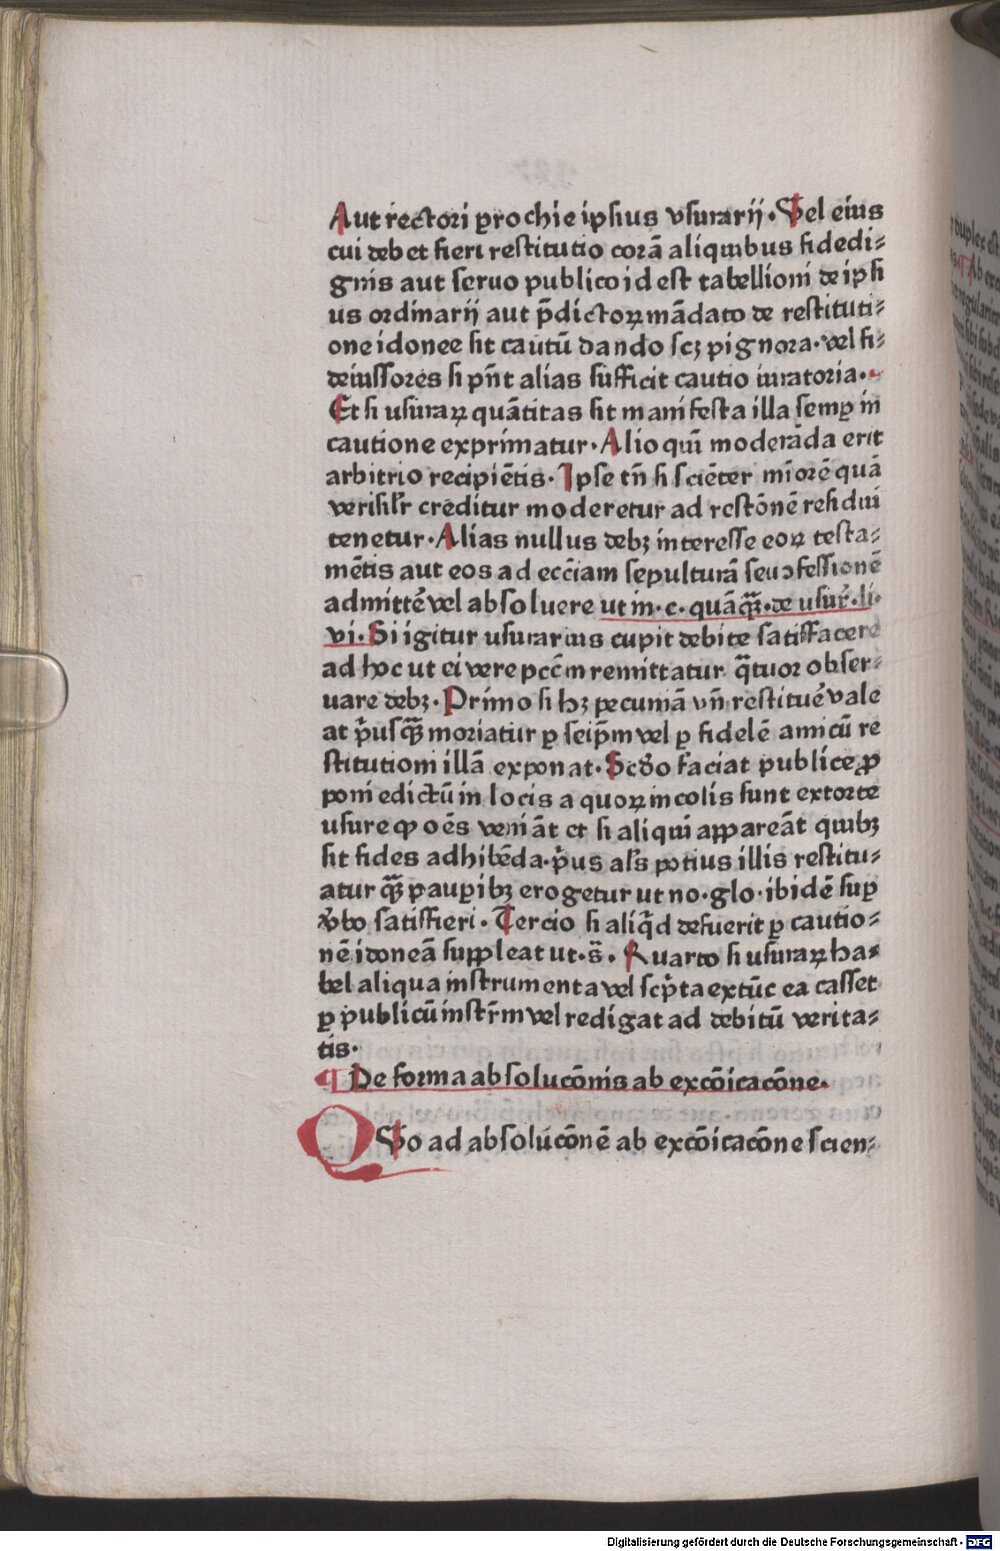 Aut rectori ꝑrochie ipsius vsurarij · Vel eius
cui debet fieri restitutio corā aliquibus fidedi⸗
gnis aut seruo publico id est tabellioni de ipsi
us ordinarij aut p̄dictoꝝ mādato de restituti⸗
one idonee sit cautū dando scꝫ pignora · vel fi⸗
deiussores si pn̄t alias sufficit cautio iuratoria ·
Et si usuraꝝ quātitas sit manifesta illa semꝑ in
cautione exprimatur · Alioqui moderāda erit
arbitrio recipiētis · Ipse tn̄ si sciēter miorē quā
verisil'r creditur moderetur ad restōnē residui
tenetur · Alias nullus debꝫ interesse eoꝝ testa⸗
mētis aut eos ad ecciam sepulturā seu ↄfessionē
admittē vel absoluere ut in · c · quāq̄ꝫ · de usur̄ · li ·
vi · Si igitur usurarius cupit debite satisfacere
ad hoc ut ei vere pccm̄ remittatur q̄tuor obser⸗
uare debꝫ · Primo si hꝫ pecuniā vn̄ restituē vale
at p̄usq̄ꝫ moriatur ꝑ seip̄m vel ꝑ fidelē amicū re
stitutioni illā exponat · Scďo faciat publice ꝓ
poni edictū in locis a quoꝝ incolis sunt extorte
usure ꝙ oēs veniāt et si aliqui appareāt quibꝫ
sit fides adhibēda · p̄us als̄ potius illis restitu⸗
atur q̄ꝫ pauꝑibꝫ erogetur ut no · glo · ibidē suꝑ
v̄bo satisfieri · Tercio si aliq̄d defuerit ꝑ cautio⸗
nē idoneā suppleat ut · s̄ · Quarto si usuraꝝ ha⸗
bel aliqua instrumenta vel scp̄ta extūc ea casset
ꝑ publicū instr̄m vel redigat ad debitū verita⸗
tis ·
¶ De forma absolucōnis ab excōicacōne ·
QVo ad absolucōnē ab excōicacōne scien⸗
Digitalisierung gefördert durch die Deutsche Forschungsgemeinschaft - DFG